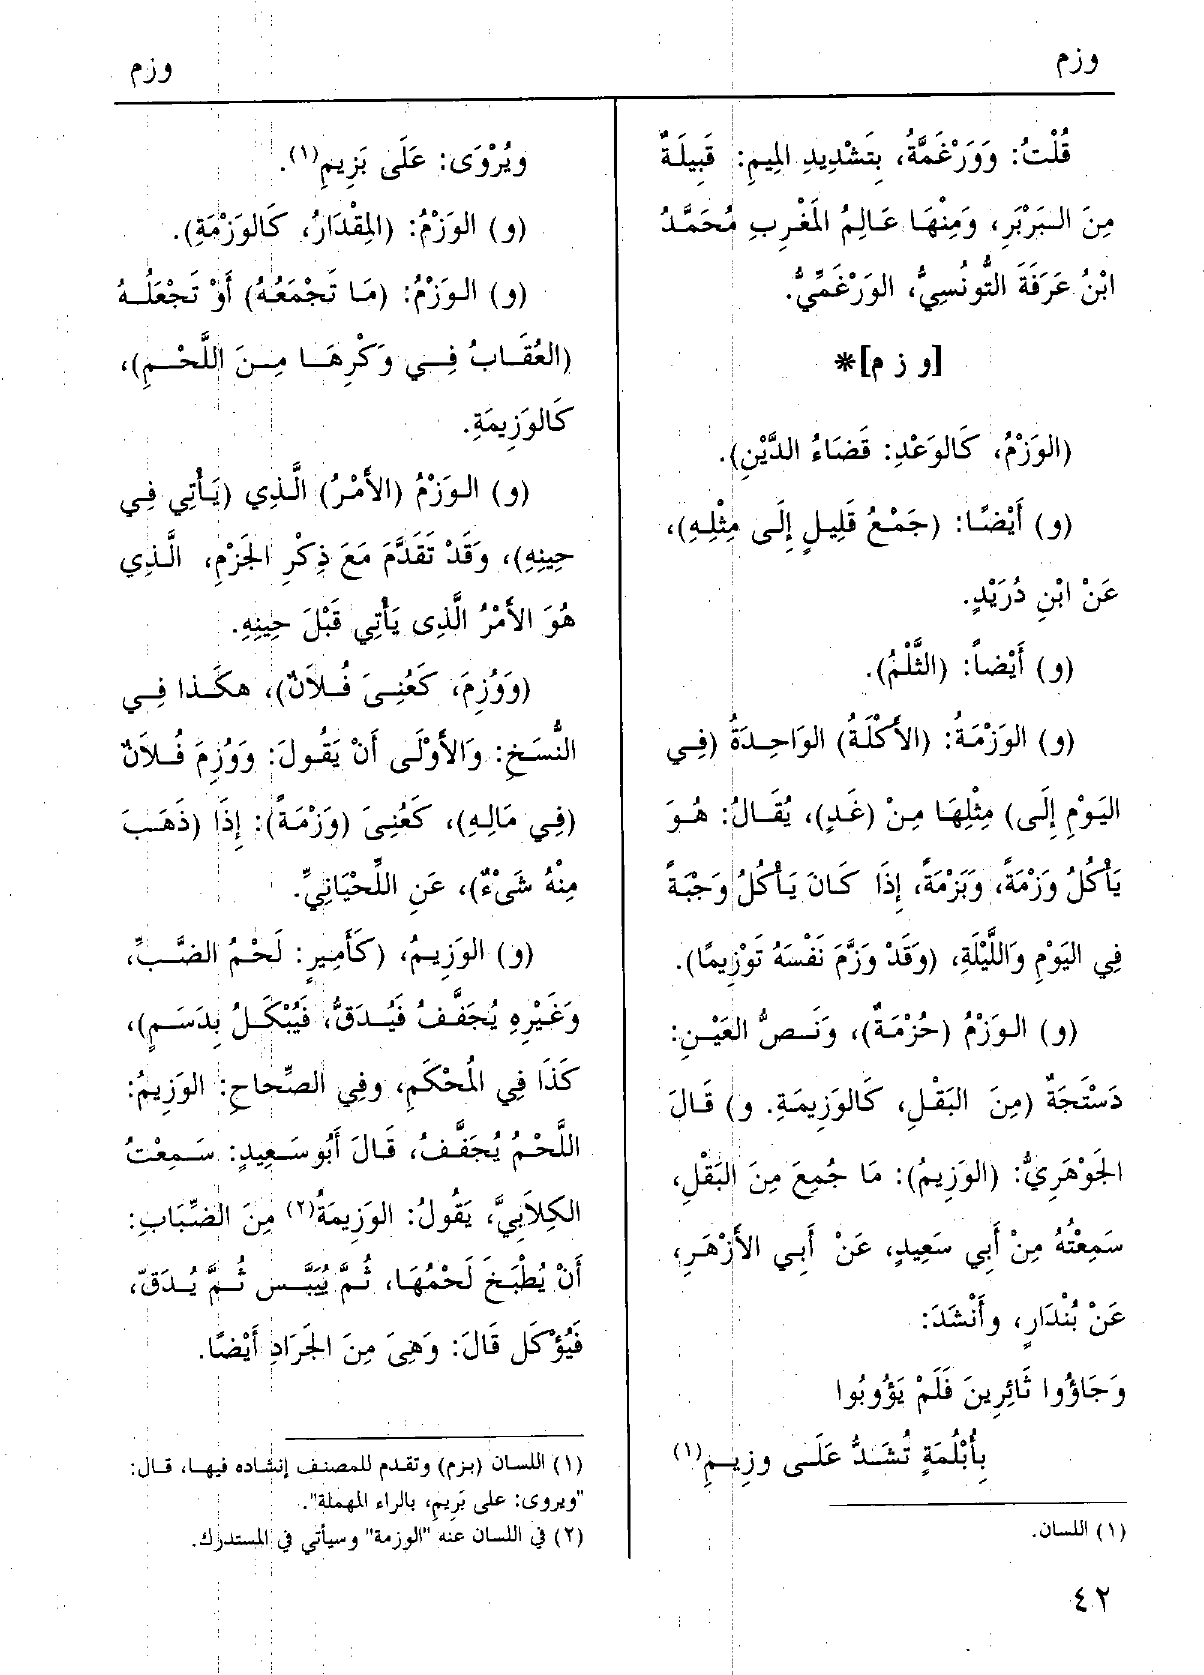 وزم
وزم
قُلْتُ: وَوَرْغَمَّةُ، بِتَشْدِيدِ المِيمِ: قَبِيلَةٌ
مِنَ البَرْبَرِ، وَمِنْهَا عَالِمُ المَغْرِبِ مُحَمَّدُ
ابْنُ عَرَفَةَ التُّونُسِيُّ، الوَرْغَمِّيُّ.
[و ز م]*
(الوَزْمُ، كَالوَعْدِ: قَضَاءُ الدَّيْنِ).
(و) أَيْضًا: (جَمْعُ قَلِيلٍ إِلَى مِثْلِهِ)،
عَنْ ابْنِ دُرَيْدٍ.
(و) أَيْضاً: (الثَّلْمُ).
(و) الوَزْمَةُ: (الأَكْلَةُ) الوَاحِدَةُ (فِي
اليَوْمِ إِلَى) مِثْلِهَا مِنْ (غَدٍ)، يُقَالُ: هُوَ
يَأْكُلُ وَزْمَةً، وَبَزْمَةً، إِذَا كَانَ يَأْكُلُ وَجْبَةً
فِي اليَوْمِ وَاللَّيْلَةِ، (وَقَدْ وَزَّمَ نَفْسَهُ تَوْزِيمًا).
(و) الوَزْمُ (حُزْمَةٌ)، وَنَصُّ العَيْنِ:
دَسْتَجَةٌ (مِنَ البَقْلِ، كَالوَزِيمَةِ. و) قَالَ
الجَوْهَرِيُّ: (الوَزِيمُ): مَا جُمِعَ مِنَ البَقْلِ،
سَمِعْتُهُ مِنْ أَبِي سَعِيدٍ، عَنْ أَبِي الأَزْهَرِ،
عَنْ بُنْدَارٍ، وأَنْشَدَ:
وَجَاؤُوا ثَائِرِينَ فَلَمْ يَؤُوبُوا
بِأُبْلُمَةٍ تُشَدُّ عَلَى وزِيمِ(١)
(١) اللسان.
ويُرْوَى: عَلَى بَزِيمِ(١).
(و) الوَزْمُ: (المِقْدَارُ، كَالوَزْمَةِ).
(و) الوَزْمُ: (مَا تَجْمَعُهُ) أَوْ تَجْعَلُهُ
(العُقَابُ فِي وَكْرِهَا مِنَ اللَّحْمِ)،
كَالوَزِيمَةِ.
(و) الوَزْمُ (الأَمْرُ) الَّذِي (يَأْتِي فِي
حِينِهِ)، وَقَدْ تَقَدَّمَ مَعَ ذِكْرِ الجَزْمِ، الَّذِي
هُوَ الأَمْرُ الَّذِى يَأْتِي قَبْلَ حِينِهِ.
(وَوُزِمَ، كَعُنِىَ فُلاَنٌ)، هكَذا فِي
النُّسَخِ: وَالأَوْلَى أَنْ يَقُولَ: وَوُزِمَ فُلاَنٌ
(فِي مَالِهِ)، كَعُنِىَ (وَزْمَةً): إِذَا (ذَهَبَ
مِنْهُ شَىْءٌ)، عَنِ اللِّحْيَانِيِّ.
(و) الوَزِيمُ، (كَأَمِيرٍ: لَحْمُ الضَّبِّ،
وَغَيْرِهِ يُجَفَّفُ فَيُدَقُّ، فَيُبْكَلُ بِدَسَمٍ)،
كَذَا فِي المُحْكَمِ، وفِي الصِّحاحِ: الوَزِيمُ:
اللَّحْمُ يُجَفَّفُ، قَالَ أَبُو سَعِيدٍ: سَمِعْتُ
الكِلاَبِيَّ، يَقُولُ: الوَزِيمَةُ(٢) مِنَ الضِّبَابِ:
أَنْ يُطْبَخَ لَحْمُهَا، ثُمَّ يُيَبَّس ثُمَّ يُدَقّ،
فَيُؤْكَل قَالَ: وَهِىَ مِنَ الجَرَادِ أَيْضًا.
(١) اللسان (بزم) وتقدم للمصنف إنشاده فيها، قال:
"ويروى: على بَرِيمِ، بالراء المهملة".
(٢) في اللسان عنه "الوزمة" وسيأتي في المستدرك.
٤٢